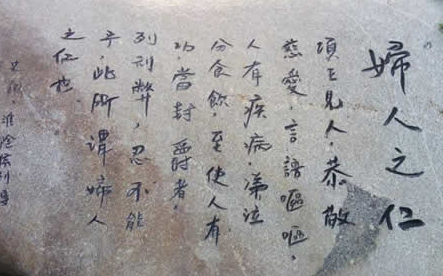 婦人之仁
項王見人,恭敬
慈愛,言語嘔嘔,
人有疾病,涕泣
分食飲,至使人有
功,當封爵者,
刓弊,忍不能
予,此所謂婦人
之仁也。
史記,淮陰侯列傳